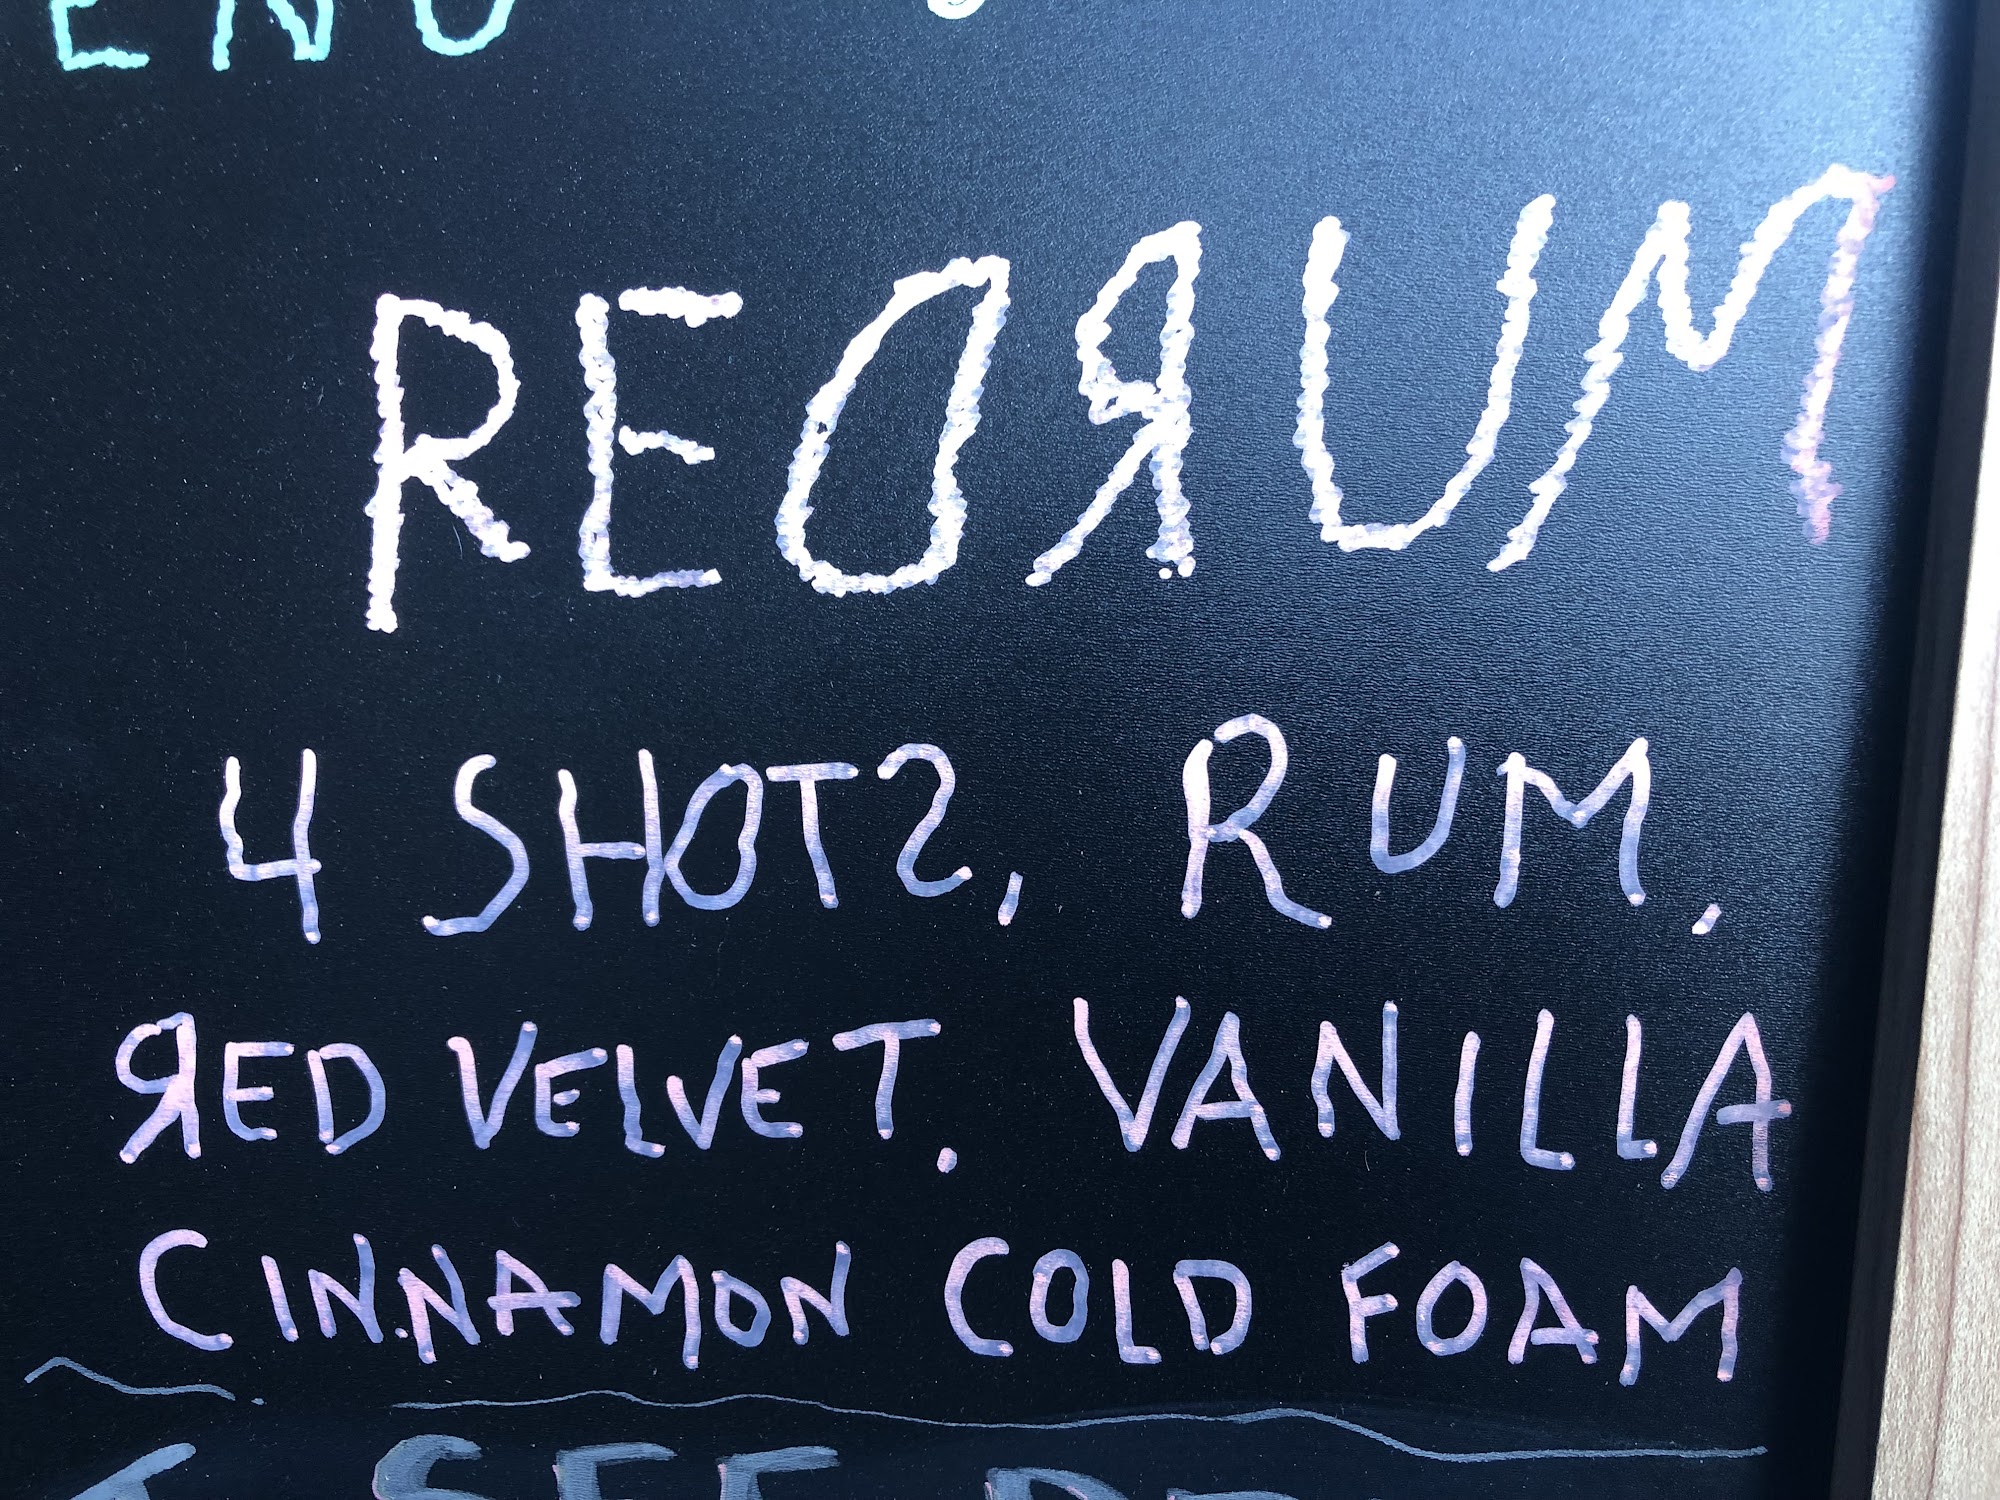 REDRUM
4 SHOTS, RUM,
RED VELVET. VANILLA
CINNAMON COLD FOAM
SEE